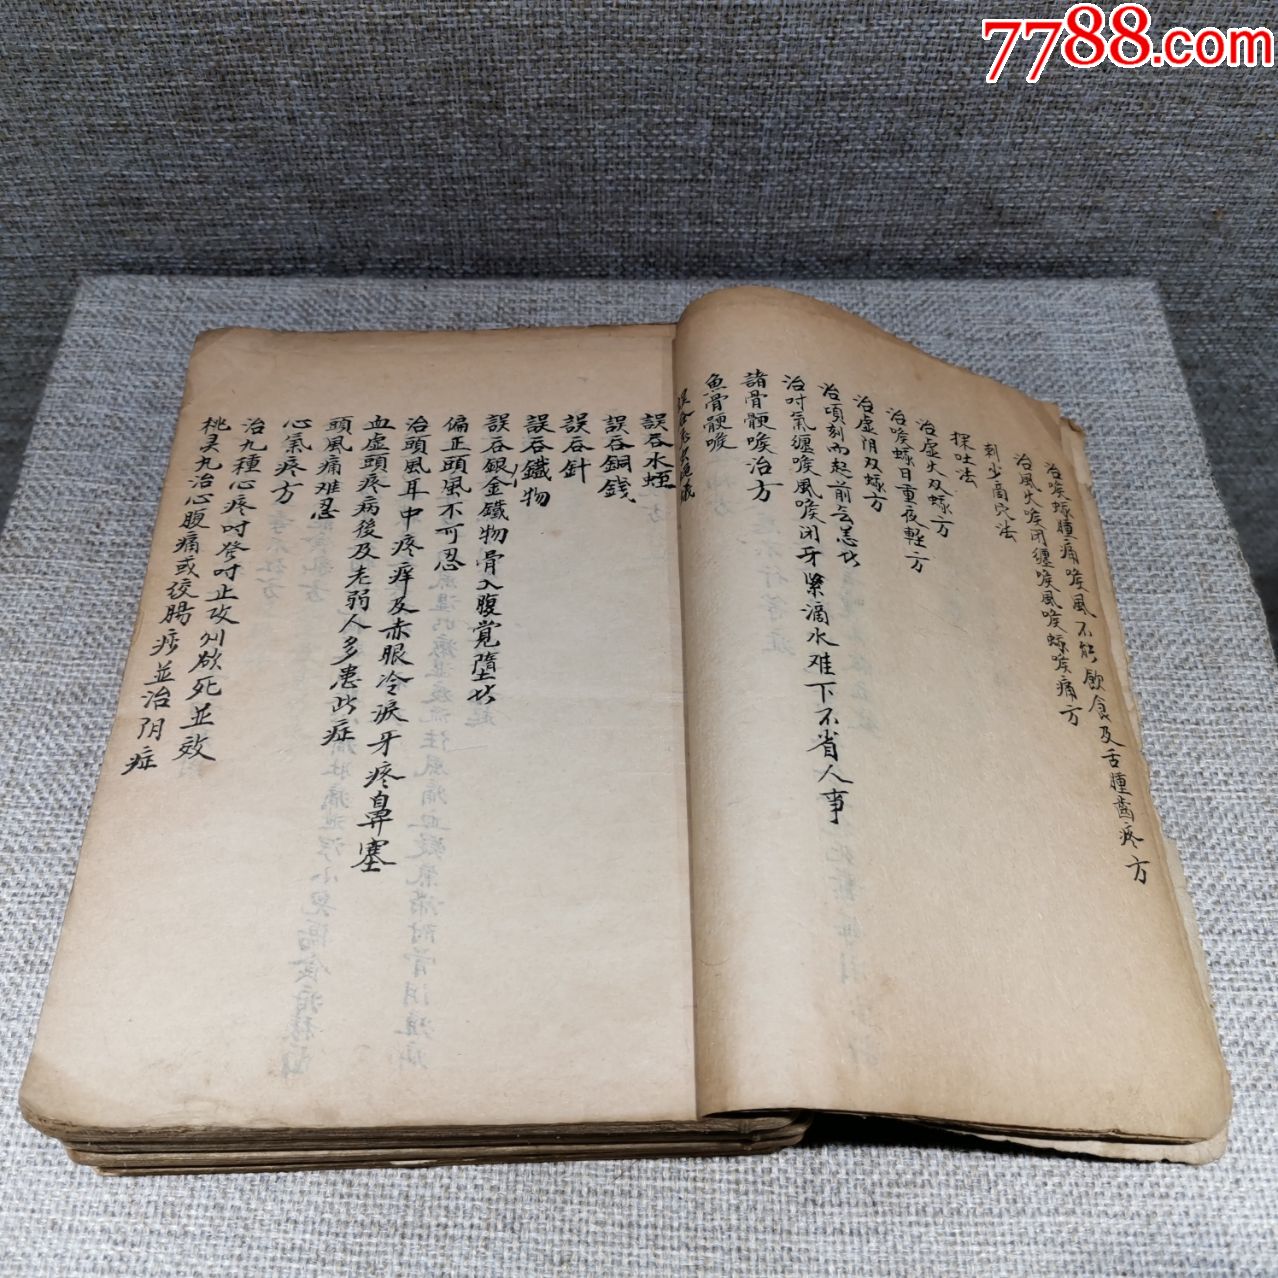 7788.com
治喉蛾腫痛喉風不能飲食及舌腫齒疼方
治風火喉闭纏喉風喉蛾喉痛方
刺少商穴法
探吐法
治虛火双蛾方
治喉蛾日重夜軽方
治虛阴双蛾方
治頃刻而起前无恙
治吋氣纏喉風喉闭牙紧滴水难下不省人事
諸骨骾喉治方
魚骨骾喉
誤吞水蛭
誤吞銅钱
誤吞針
誤吞鐵物
誤吞銀金鐵物骨入腹覚墮
偏正頭風不可忍
治頭風耳中疼痒及赤眼冷淚牙疼鼻塞
血虛頭疼病後及老弱人多患此症
頭風痛难忍
心氣疼方
治九種心疼吋發吋止攻刺欲死並效
桃灵丸治心腹痛或绞腸痧並治阴症